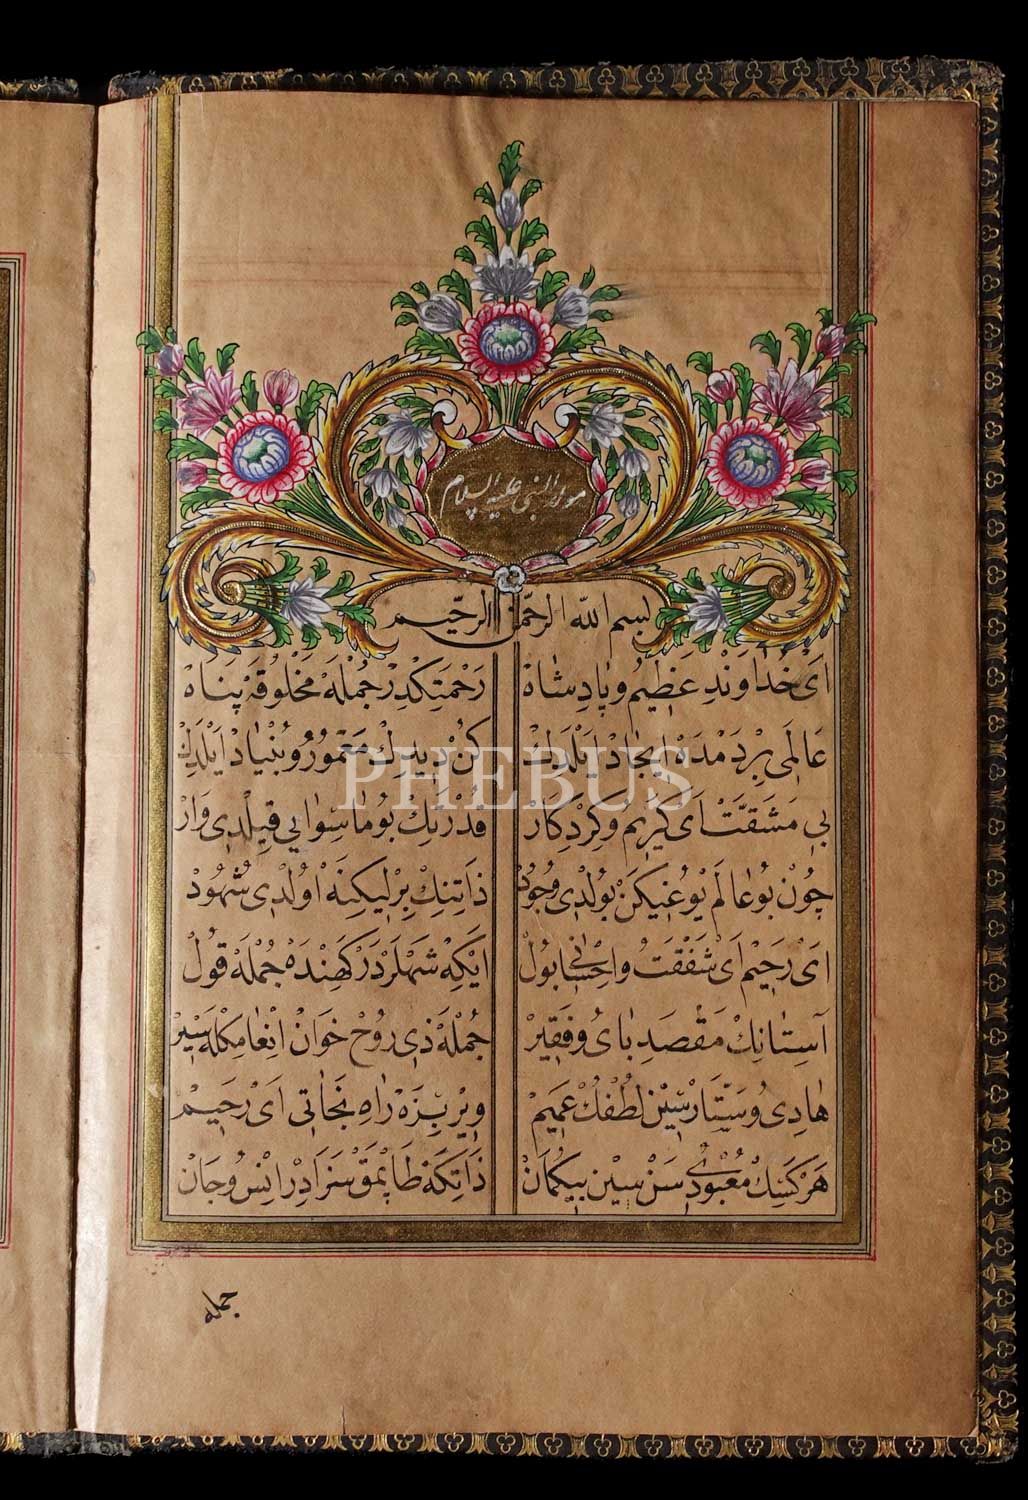 مولد النبي عليه السلام
بسم الله الرحمن الرحيم
اَىْ خُدَاوَنْدِ عَظِيمُ وپَادِشَاهْ رَحْمَتِكْدِرْ جُمْلَهْ مَخْلُوقَهْ پَنَاهْ
عَالَمِى بِرْ دَمْدَهْ اِيجَادْ اَيْلَدِكْ كُنْ دِيدِكْ مَعْمُورُ وبُنْيَادْ اَيْلَدِكْ
بِى مَشَقَّتْ اَىْ كَرِيمُ وكِرْدِكَارْ قُدْرَتِكْ بُو مَاسِوَايِى قِيلْدِى وَارْ
چُونْ بُو عَالَمْ يُوغِيكَنْ بُولْدِى وُجُودْ ذَاتِنِكْ بِرْلِيكِنَهْ اُولْدِى شُهُودْ
اَىْ رَحِيمْ اَىْ شَفْقَتُ واِحْسَانِى بُولْ اِيكِهْ شَمْلَرْدَرْ كَهِنْدَهْ جُمْلَهْ قُولْ
آسِتَانِكْ مَقْصَدِ بَاىُ وفَقِيرْ جُمْلَهْ ذِى رُوحْ خَوَانْ اِنْعَامِكْلَهْ سَيِرْ
هَادِىُ وسَتَّارْسِينْ لُطْفُكْ عَمِيمْ وِيرْ بِزَهْ رَاهِ نَجَاتِى اَىْ رَحِيمْ
هَرْ كَسِكْ مَعْبُودِى سَنْ سِينْ بِيكُمَانْ ذَاتِكَهْ طَاپْمَقْ سَزَادِرْ اِنْسُ وجَانْ
جمله
PHEBUS